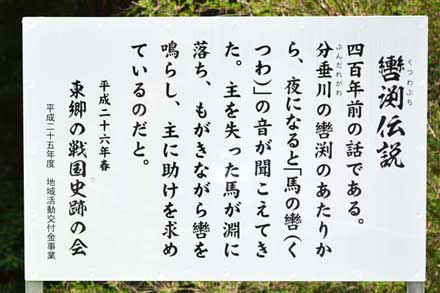 轡渕伝説
くつわぶち
四百年前の話である。
分垂川の轡渕のあたりか
ぶんだれがわ
ら、夜になると「馬の轡（く
つわ）」の音が聞こえてき
た。主を失った馬が淵に
落ち、もがきながら轡を
鳴らし、主に助けを求め
ているのだと。
平成二十六年春
東郷の戦国史跡の会
平成二十五年度　地域活動交付金事業